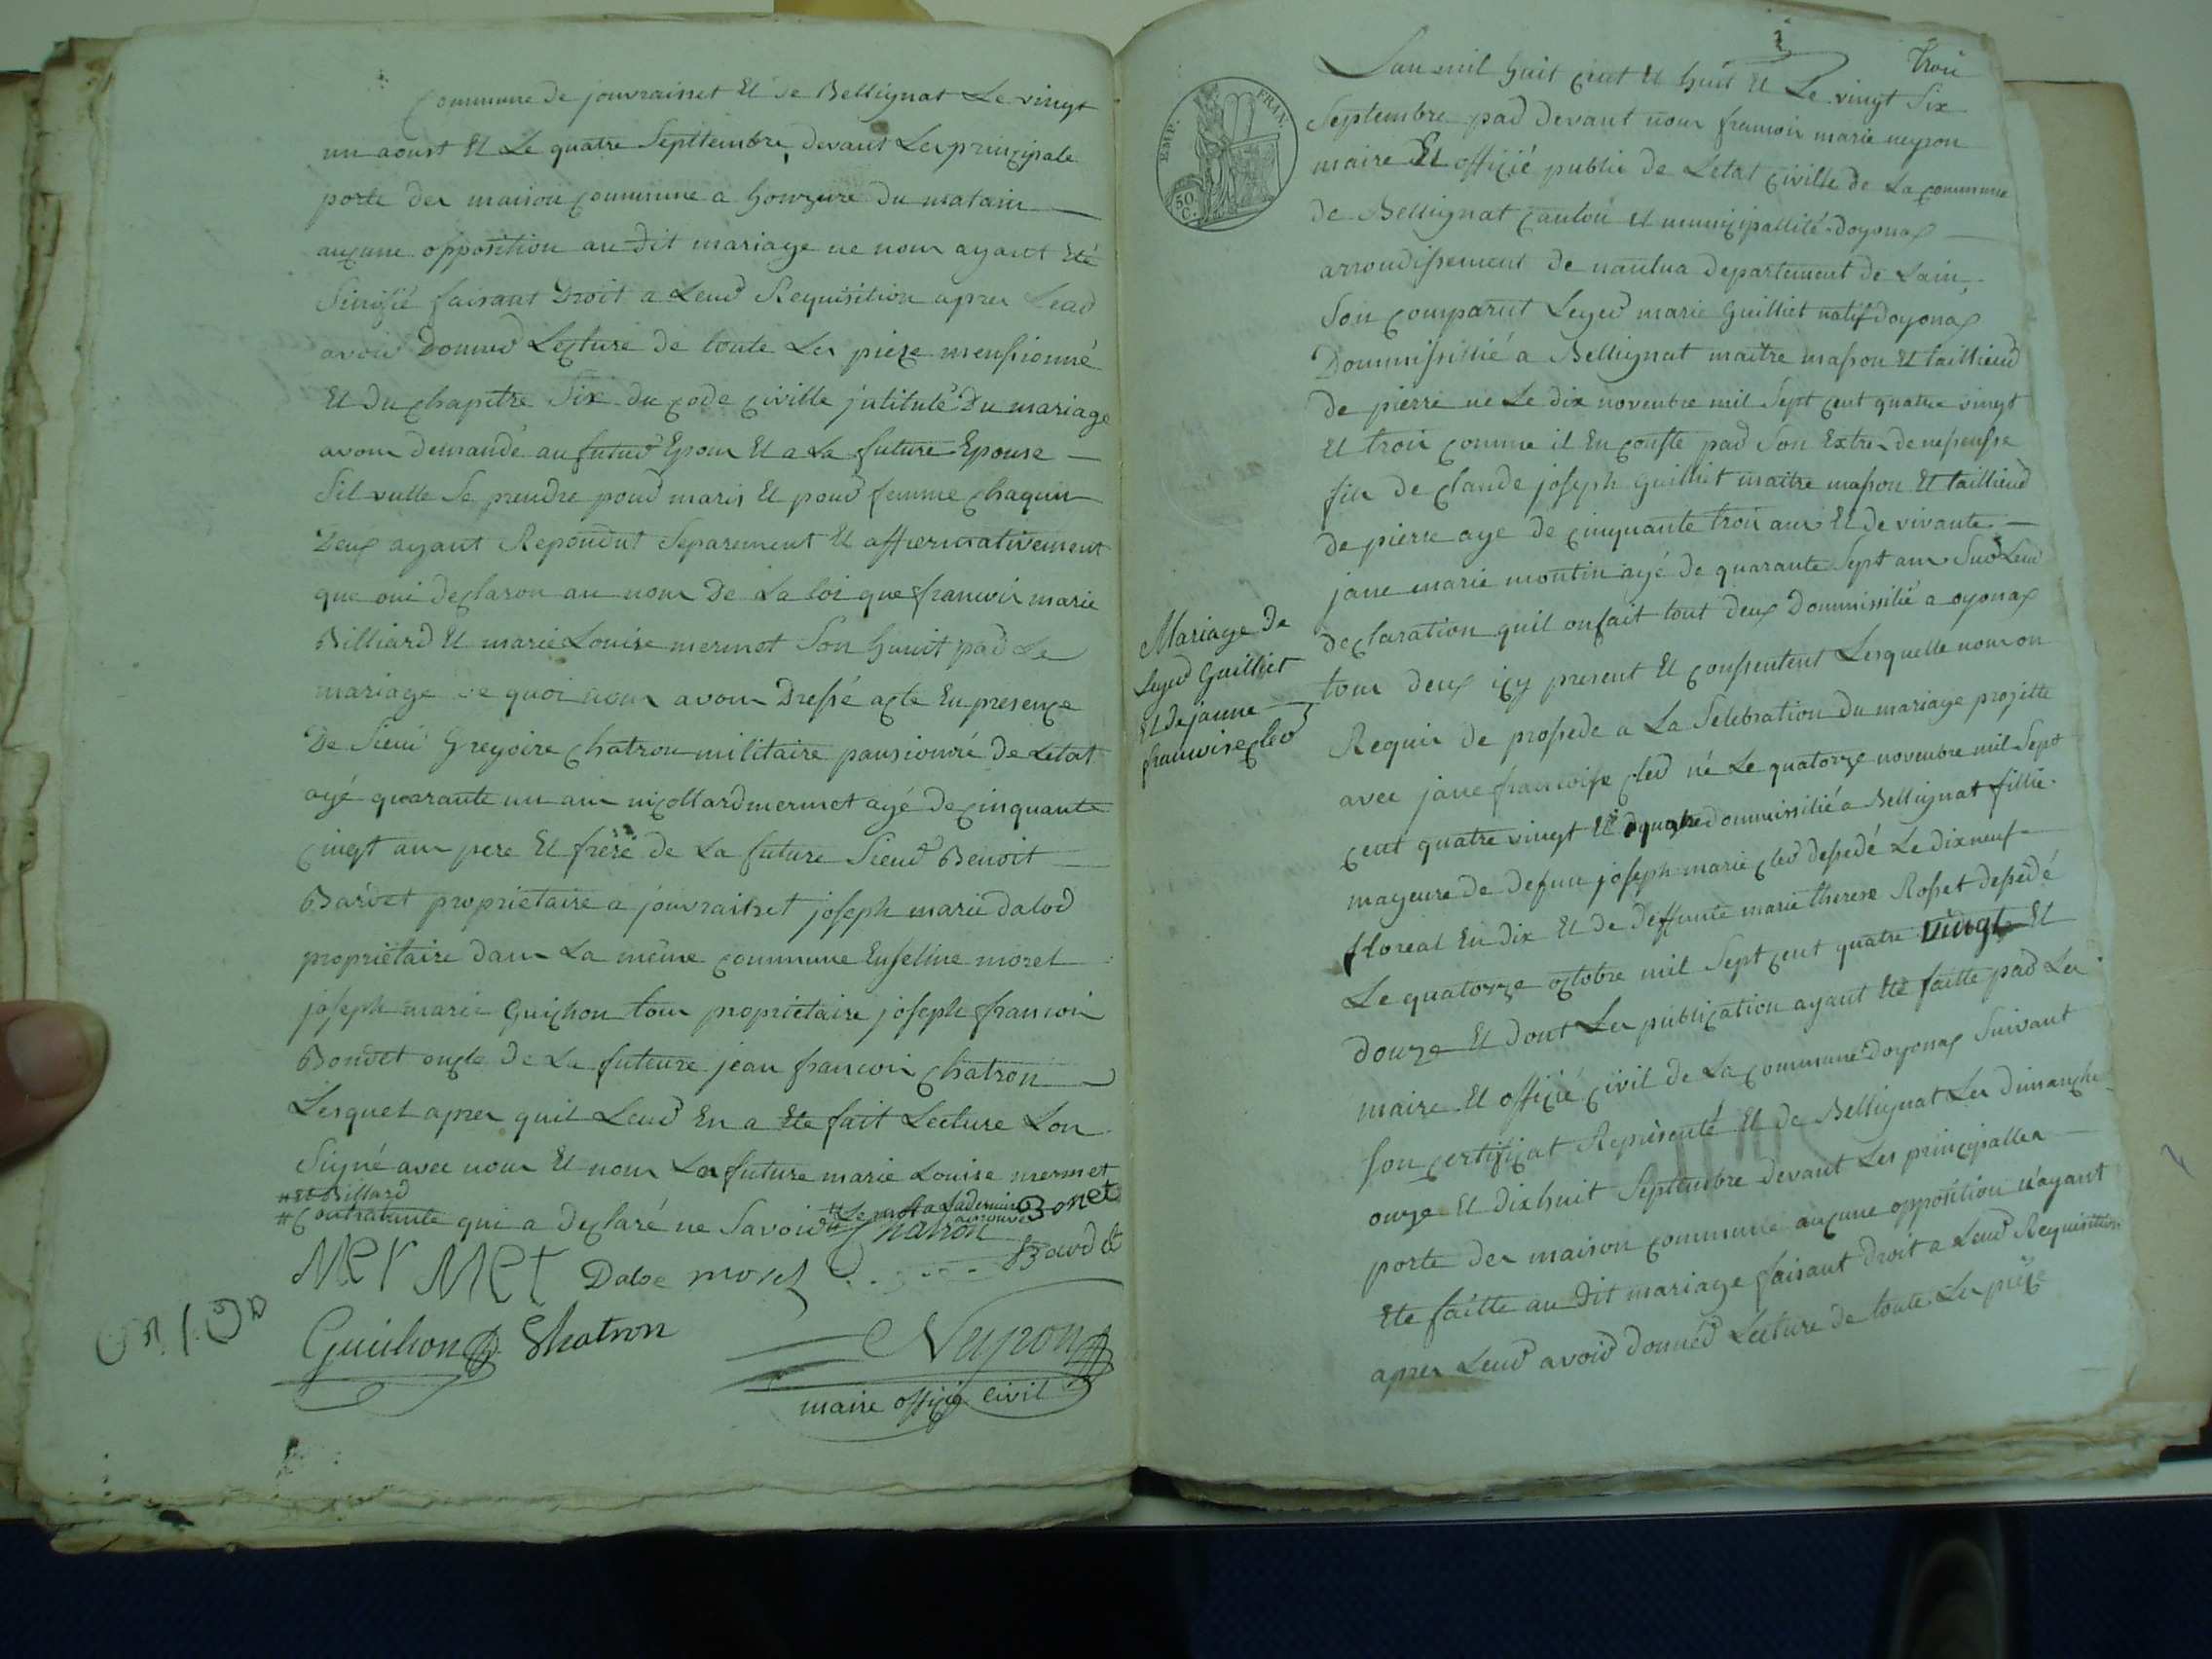 Commune de jouvrainset Et de Bellignat Le vingt
un aoust Et Le quatre Septtembre, devant Les principale
porte des maison commune a honzeure du matain
aucune opposition au dit mariage ne nous ayant Eté
Sinifié faisant Droit a Leur Requisition apres Lear
avoir Donner Lecture de toute Les pieze menssionné
Et du chapitre Six du code civille jntitulé Du mariage
avons demandé au futur Epous Et a La future Epouse
Sil vulle Se prendre pour maris Et pour femme chaquin
Deux ayant Repondut Separement Et affirmativement
que oui declaron au nom De La loi que francois marie
Billiard Et marie Louise mermet Son hunit par Le
mariage de quoi nous avons Dressé acte En presence
De Sieur Gregoire Chatron militaire pansionnré de Letat
agé quarante un ans nicollard mermet agé de cinquante
cinqt ans pere Et frere de La future Sieur Benoit
Barvet propriétaire a jouvrainset joseph marie dalod
propriétaire dans La même commune Enseline morel
joseph marie Guichon tous propriétaire joseph francois
Bondet oncle de La futeure jean francois Chatron
Lesquel apres quil Leur En a Ete fait Lecture Lon
Signé avec nous Et nom La future marie Louise mermet
# Et Billard
# Contratante qui a declaré ne Savoir #
Bonet
Chatron
Mer Met Daloz morel
Guichon Chatron
Neyron
maire officie civil
trois
Lan mil huit cent Et huit Et Le vingt Six
Septembre par devant nous francois marie neyron
maire Et officié public de Letat civille de La commune
de Bellignat Canton Et municipallité doyonax
arrondissement de nantua departement de Lain
EMP. FRAN.
50 C.
Son comparut Leger marie Guilliet natif doyonax
Dommissillié a Bellignat maitre masson Et taillieur
de pierre né Le dix novembre mil Sept cent quatre vingt
Et trois comme il En conste par Son Extres de nessensse
fils de claude joseph Guilliet maitre masson Et taillieur
de pierre age de cinquante trois ans Et de vivante
jane marie montin agé de quarante Sept ans Suo Leur
declaration quil onfait tout deux Dommissilié a oyonax
tous deux icy present Et conssentent Lesquelle nous on
Mariage de
Leger Guilliet
Et de janne
francoise cler
Requis de prossede a La Selebration du mariage projette
avec jane francoise cler né Le quatorze novembre mil Sept
cent quatre vingt Et dommissilié a Bellignat fillie
mageure de defun joseph marie cler dessedé Le dix neuf
floreal En dix Et de deffunte marie therese Rosset dessedé
Le quatorze octobre mil Sept cent quatre vingt Et
douze Et dont Les publication ayant Eté faitte par Les
maire Et officié civil de La commune doyonax Suivant
Son certificat Representé Et de Bellignat Les dimanche
onze Et dixhuit Septembre devant Les principalles
porte des maison commune aucune opposition n'ayant
Ete faitte au dit mariage faisant droit a Leur Requisition
apres Leur avoir donner Lecture de toute Les pieze